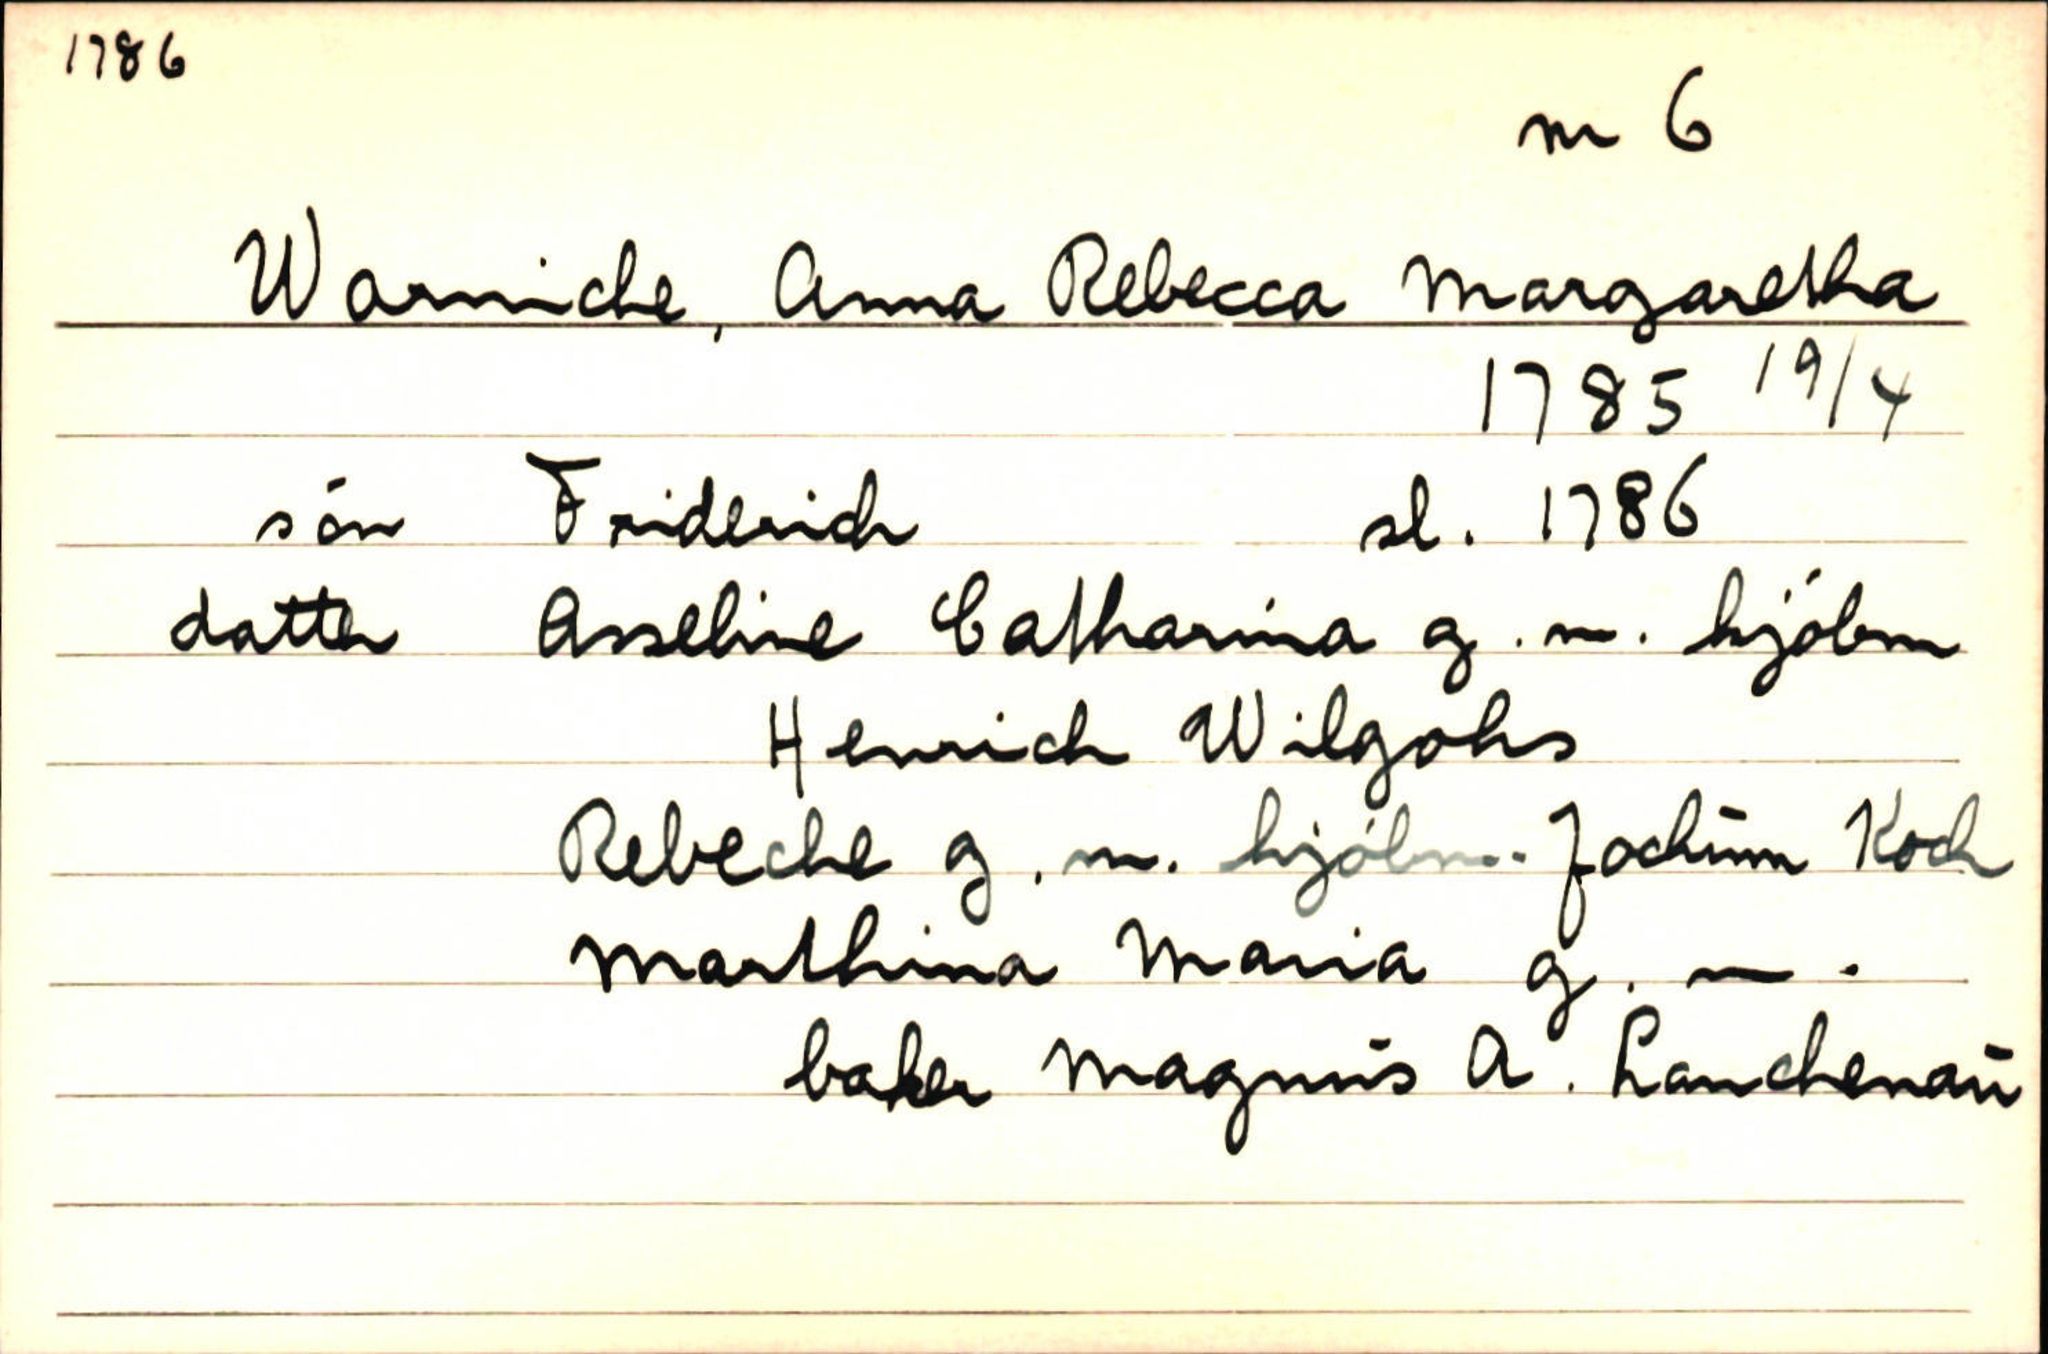 1786
nr 6
Warniche, Anna Rebecca Margaretha
1785 19/4
sön Friderich sl. 1786
datter Asseline Catharina g. m. kjöbm
Henrich Wilgohs
Rebeche g. m. kjöbm. Jochim Koch
Marthina Maria g. m.
baker Magnus A. Lanchenau